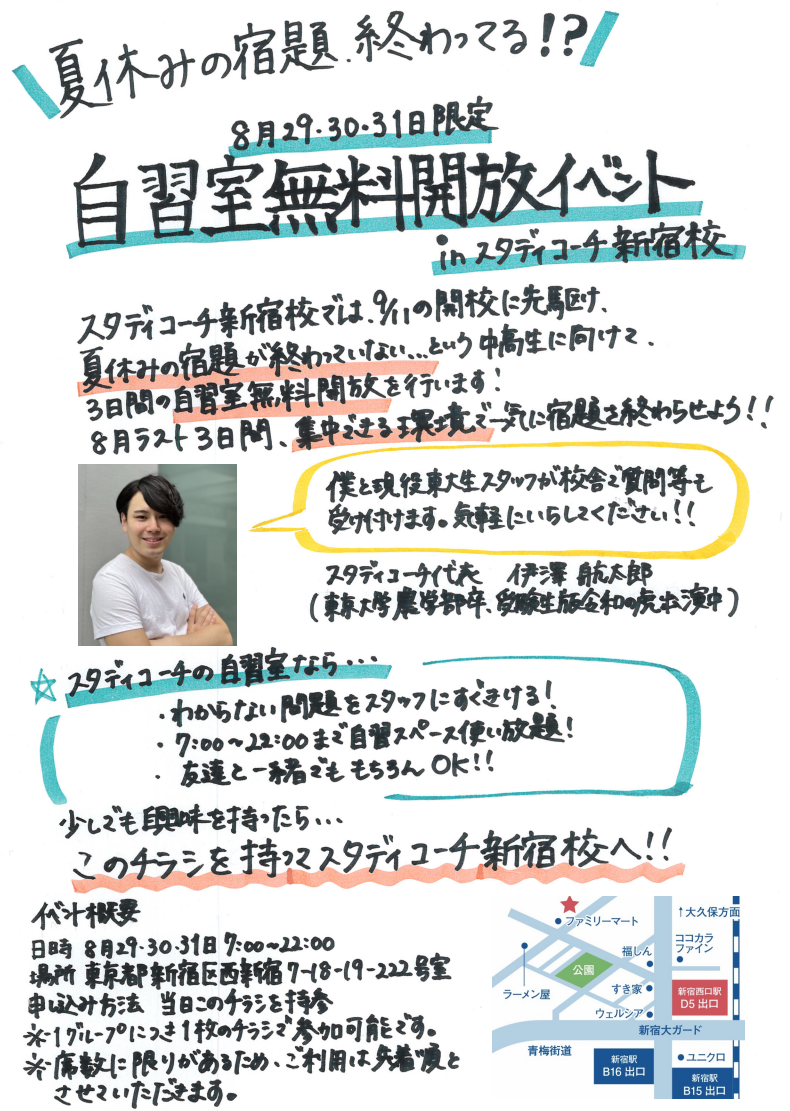 夏休みの宿題、終わってる!?
8月29・30・31日限定
自習室無料開放イベント
in スタディコーチ新宿校
スタディコーチ新宿校では、9/11の開校に先駆け、
夏休みの宿題が終わっていない…という中高生に向けて、
3日間の自習室無料開放を行います!
8月ラスト3日間、集中できる環境で一気に宿題を終わらせよう!!
僕と現役東大生スタッフが校舎で質問等も
受け付けます。気軽にいらしてください!!
スタディコーチ代表 伊澤航太郎
(東京大学農学部卒、受験生版令和の虎出演中)
☆スタディコーチの自習室なら…
・わからない問題をスタッフにすぐきける!
・7:00〜22:00まで自習スペース使い放題!
・友達と一緒でももちろんOK!!
少しでも興味を持ったら…
このチラシを持ってスタディコーチ新宿校へ!!
イベント概要
日時 8月29・30・31日 7:00〜22:00
場所 東京都新宿区西新宿7-18-19-222号室
申し込み方法 当日このチラシを持参
※1グループにつき1枚のチラシで参加可能です。
※席数に限りがあるため、ご利用は先着順と
させていただきます。
ファミリーマート
↑大久保方面
福しん
ココカラ
ファイン
公園
ラーメン屋
すき家
新宿西口駅
D5 出口
ウェルシア
新宿大ガード
青梅街道
新宿駅
B16 出口
ユニクロ
新宿駅
B15 出口